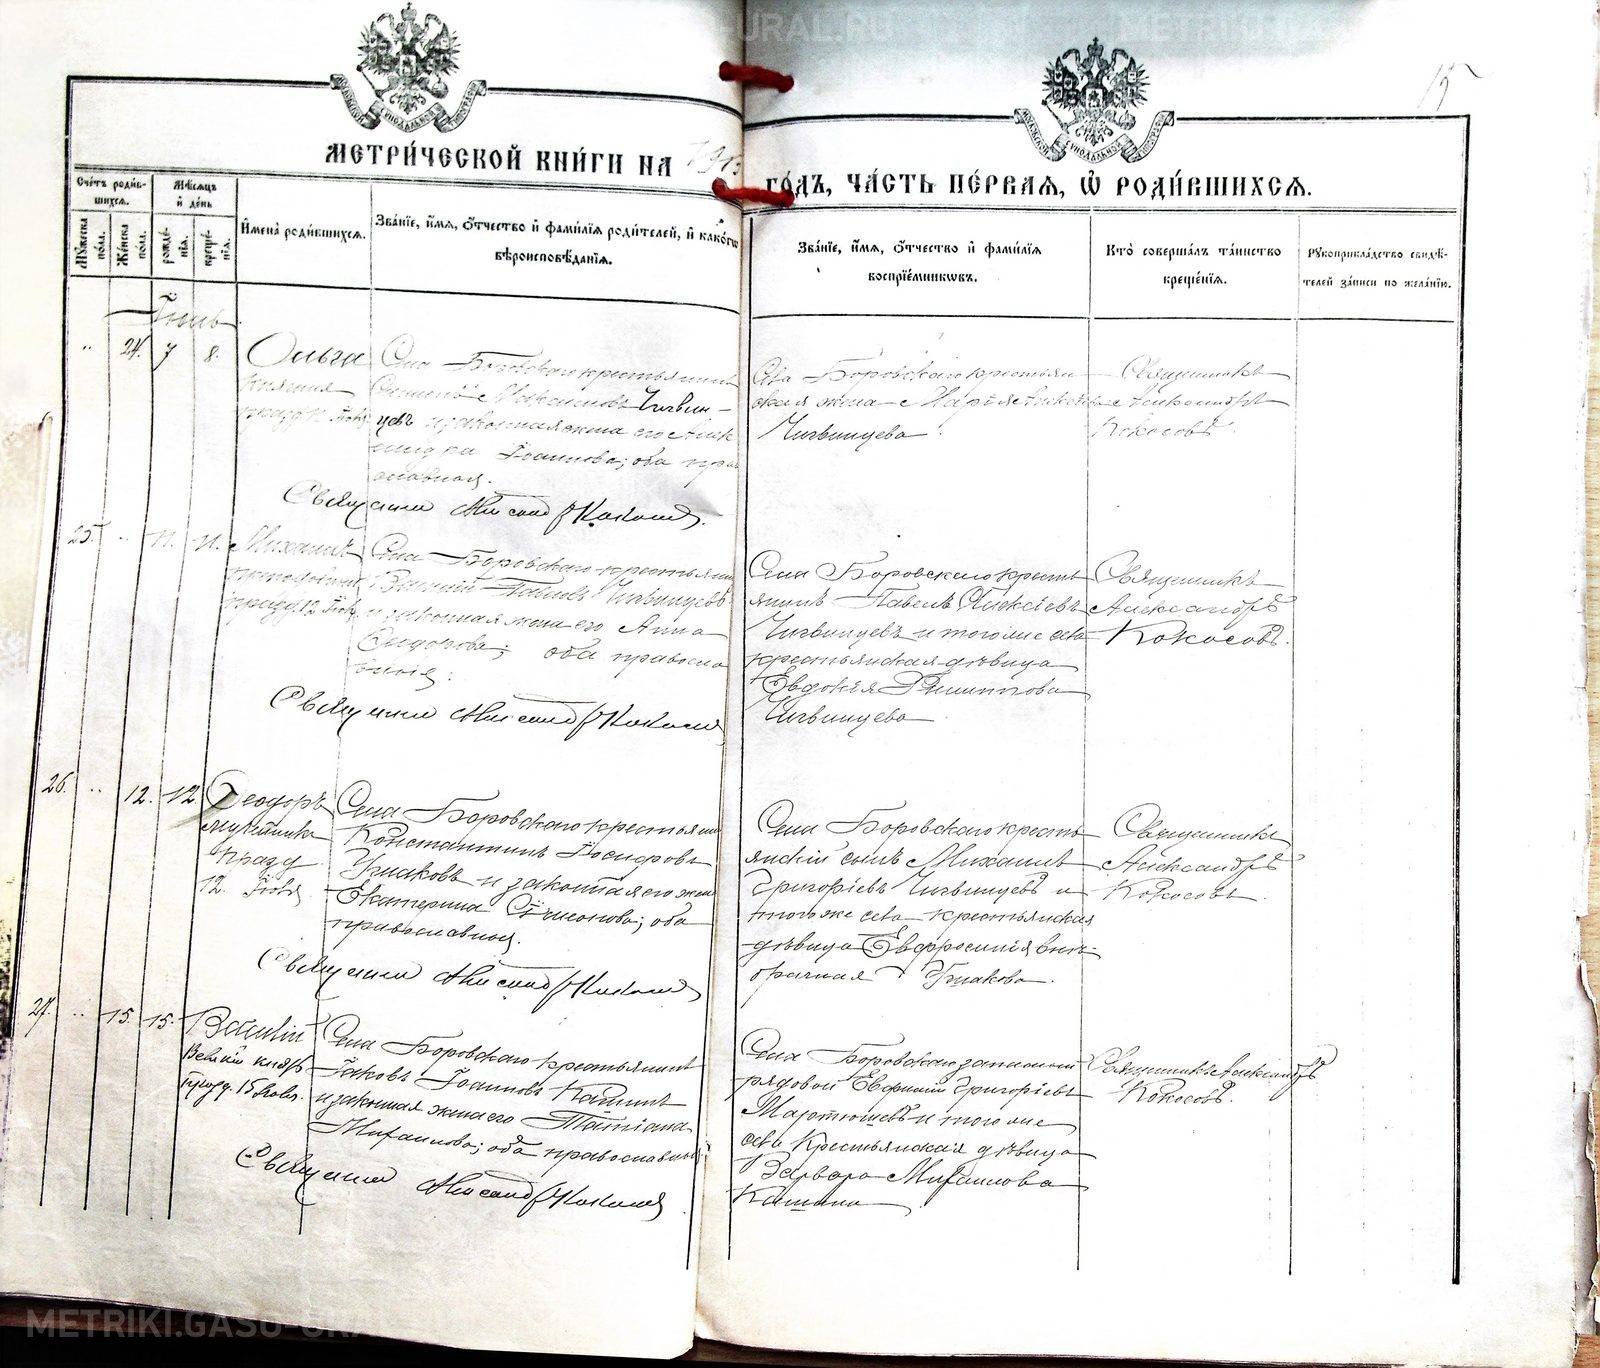 METRIKI.GASO-URAL.RU
15
МОСКОВСКОЙ СѴНОДАЛЬНОЙ ТИПОГРАФІИ
МОСКОВСКОЙ СѴНОДАЛЬНОЙ ТИПОГРАФІИ
МЕТРИ́ЧЕСКОЙ КНИ́ГИ НА 1913
ГО́ДЪ, ЧА́СТЬ ПЕ́РВАѦ, Ѡ҆ РОДИ́ВШИХСѦ.
Сче́тъ роди́в-
шихсѧ.
Мꙋ́жеска пол.
Же́нска пол.
Мѣ́сѧцъ
и҆ де́нь
рожде́-
нїѧ.
креще́-
нїѧ.
И҆мена̀ роди́вшихсѧ.
Зва́нїе, и҆́мѧ, ѻ҆́тчество и҆ фами́лїѧ роди́телей, и҆ како́гѡ
вѣроисповѣ́данїѧ.
Зва́нїе, и҆́мѧ, ѻ҆́тчество и҆ фами́лїѧ
воспрїе́мникѡвъ.
Кто̀ соверша́лъ та́инство
креще́нїѧ.
Рꙋкоприкла́дство свидѣ́-
телей за́писи по жела́нїю.
Іюль
„ 24. 7 8.
Ольга
княгиня
празд. 11 Іюля
Села Боровскаго крестьянинъ
Максимовъ Чигвин-
цевъ и законная жена его
Іоаннова; оба пра
вославные.
Священникъ Александръ Кокосовъ.
Села Боровскаго крестьян
ская жена Марія Алексѣева
Чигвинцева.
Священникъ
Александръ
Кокосовъ.
25. „ 11. 11.
Михаилъ
празд. 12 Іюля
Села Боровскаго крестьянинъ
Василій Павловъ Чигвинцевъ
и законная жена его Анна
Сидорова; оба правосла
вные.
Священникъ Александръ Кокосовъ
Села Боровскаго кресть
янинъ Павелъ Алексѣевъ
Чигвинцевъ и того же села
крестьянская дѣвица
Евдокія Филиппова
Чигвинцева
Священникъ
Александръ
Кокосовъ.
26. „ 12. 12
Ѳеодоръ
празд
12. Іюля
Села Боровскаго крестьянинъ
Константинъ Іосифовъ
Ушаковъ и законная его жена
Екатерина; оба
православные.
Священникъ Александръ Кокосовъ
Села Боровскаго кресть
янскій сынъ Михаилъ
Григоріевъ Чигвинцевъ и
того же села крестьянская
дѣвица Евфросинія внѣ-
брачная Ушакова.
Священникъ
Александръ
Кокосовъ.
27. „ 15. 15.
Василій
Великій князь
празд. 15 Іюля.
Села Боровскаго крестьянинъ
Іаковъ Іоанновъ Кашинъ
и законная жена его Татіана
Михаилова; оба православные
Священникъ Александръ Кокосовъ
Села Боровскаго запасный
рядовой Евфимій Григоріевъ
Мартюшевъ и того же
села Крестьянская дѣвица
Варвара Михаилова
Кашина
Священникъ Александръ
Кокосовъ.
METRIKI.GASO-URAL.RU